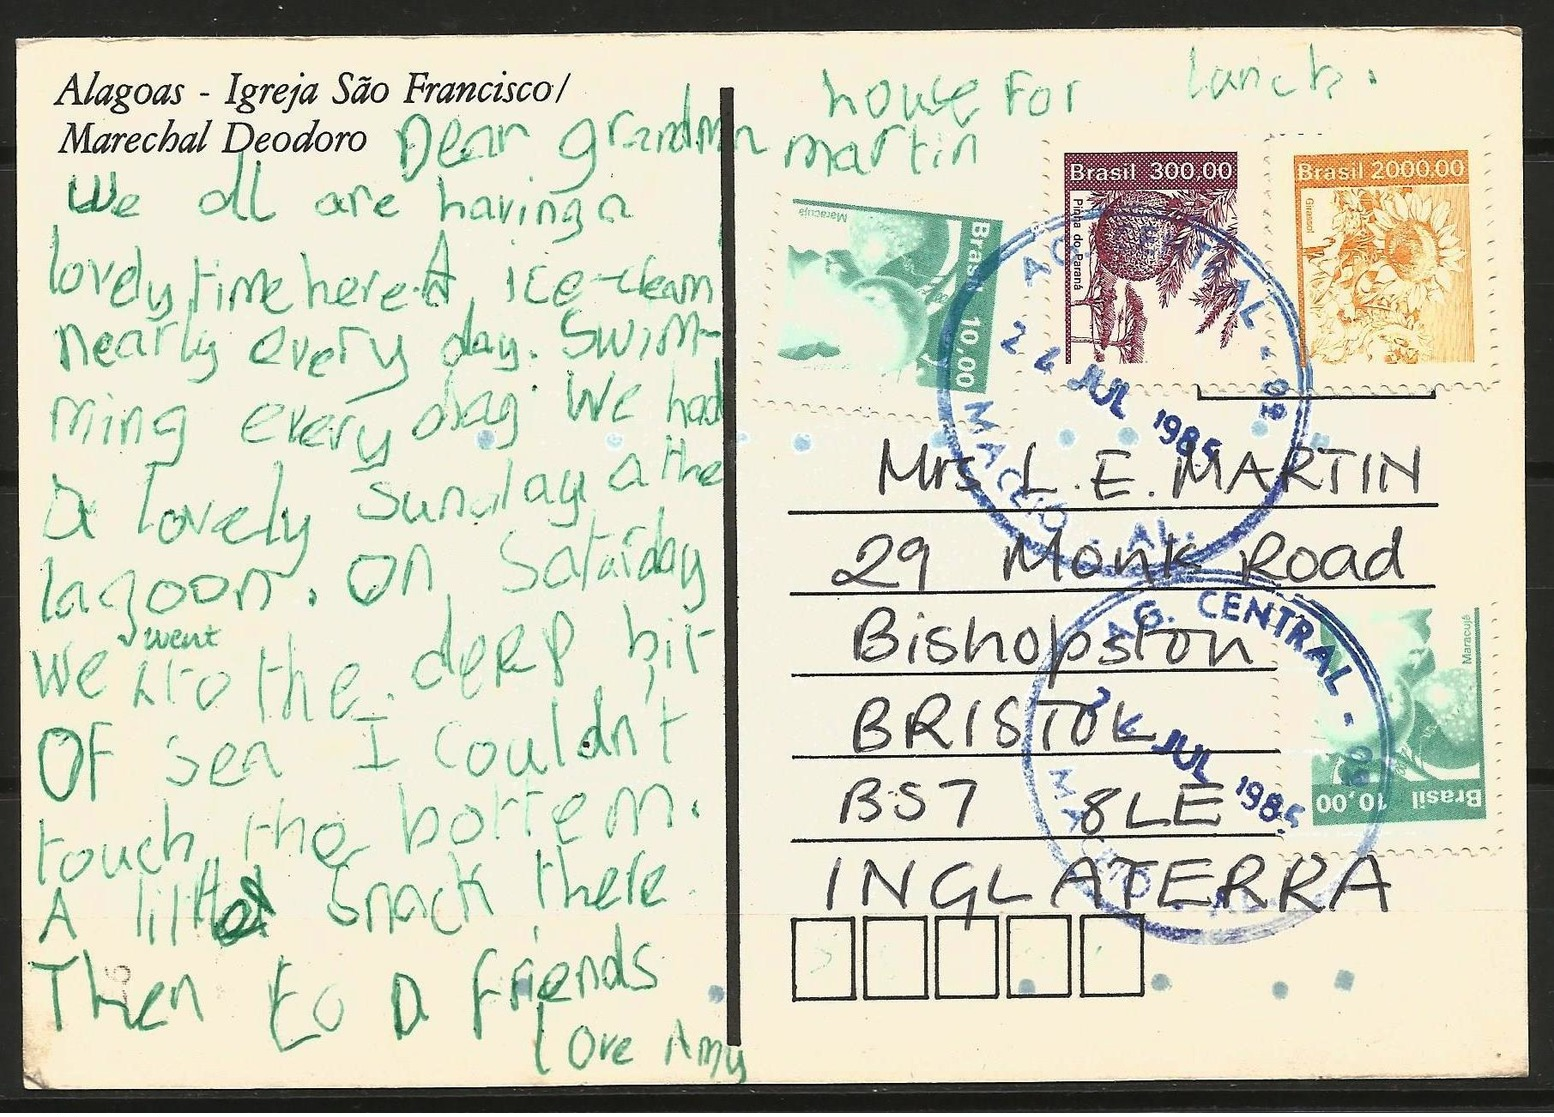 Alagoas - Igreja São Francisco/
Marechal Deodoro
Dear grandma martin
We all are having a
lovely time here. A ice-cleam
nearly every day. Swim-
ming every day. We had
a lovely Sunday a the
lagoon. On Saturday
we went to the deep bit
OF sea I couldn't
touch the bottem.
A little snack there.
Then to a friends
house For lunch.
love Amy
Brasil 10,00
Maracujá
Brasil 300,00
Pinha do Paraná
Brasil 2000,00
Girassol
AG. CENTRAL - 02
24 JUL 1985
MACEIO - AL.
Mrs L. E. MARTIN
29 Monk Road
Bishopston
BRISTOL
BS7 8LE
INGLATERRA
AG. CENTRAL - 02
24 JUL 1985
MACEIO - AL
Maracujá
Brasil 10,00